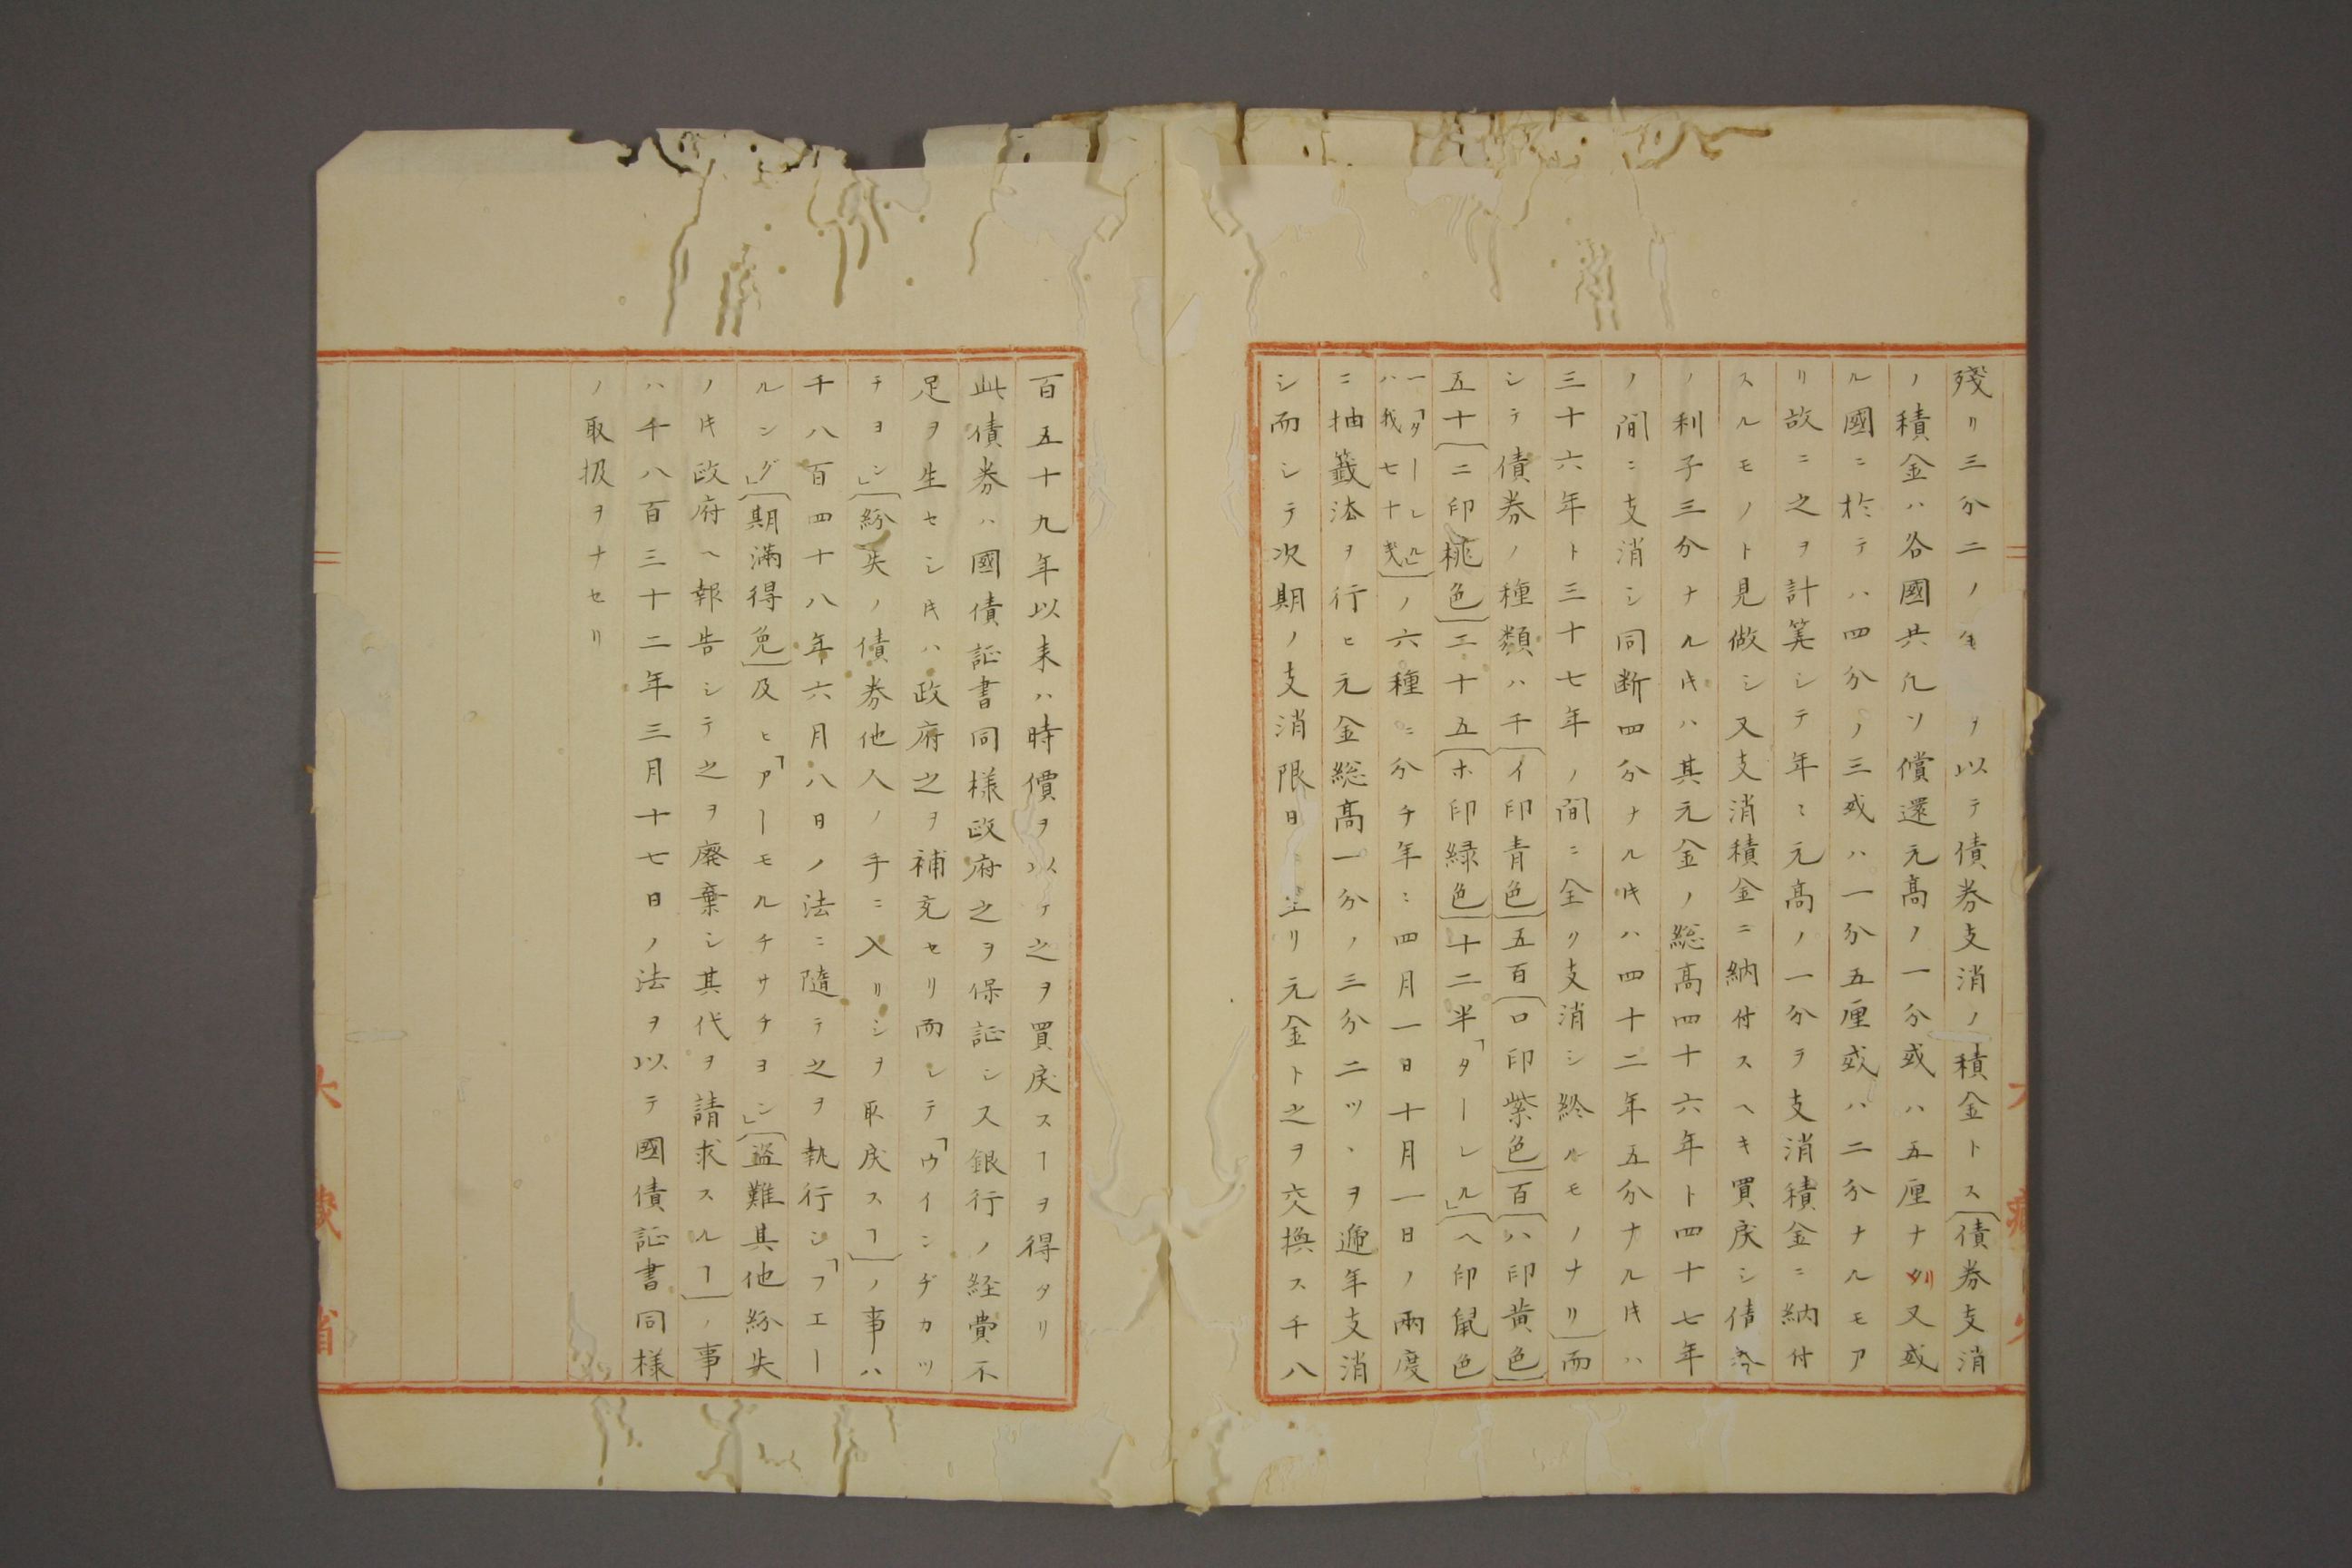 殘リ三分二ノ年ヲ以テ債券支消ノ積金トス〔債券支消
ノ積金ハ各國共凡ソ償還元髙ノ一分或ハ五厘ナリ又或
ル國ニ於テハ四分ノ三或ハ一分五厘或ハ二分ナルモア
リ故ニ之ヲ計筭シテ年〻元髙ノ一分ヲ支消積金ニ納付
スルモノト見做シ又支消積金ニ納付スヘキ買戾シ債券
ノ利子三分ナル片ハ其元金ノ総髙四十六年ト四十七年
ノ間ニ支消シ同断四分ナル片ハ四十二年五分ナル片ハ
三十六年ト三十七年ノ間ニ全ク支消シ終ルモノナリ〕而
シテ債券ノ種類ハ千〔イ印青色〕五百〔ロ印紫色〕百〔ハ印黄色〕
五十〔ニ印桃色〕二十五〔ホ印緑色〕十二半「ターレル」〔ヘ印鼠色
一「ターレル」
ハ我七十戔〕
ノ六種ニ分チ年〻四月一日十月一日ノ兩度
ニ抽籤法ヲ行ヒ元金総髙一分ノ三分二ツヽヲ遞年支消
シ而シテ次期ノ支消限日ニ至リ元金ト之ヲ交換ス千八
百五十九年以来ハ時價ヲ以テ之ヲ買戾スヿヲ得タリ
此債券ハ國債証書同様政府之ヲ保証シ又銀行ノ経費不
足ヲ生セシ片ハ政府之ヲ補充セリ而シテ「ウインヂカツ
チヨン」〔紛失ノ債券他人ノ手ニ入リシヲ取戾スヿ〕ノ事ハ
千八百四十八年六月八日ノ法ニ隨テ之ヲ執行シ「フエー
ルング」〔期滿得免〕及ヒ「アーモルチサチヨン」〔盗難其他紛失
ノ片政府ヘ報告シテ之ヲ廃棄シ其代ヲ請求スルヿ〕ノ事
ハ千八百三十二年三月十七日ノ法ヲ以テ國債証書同様
ノ取扱ヲナセリ
大藏省